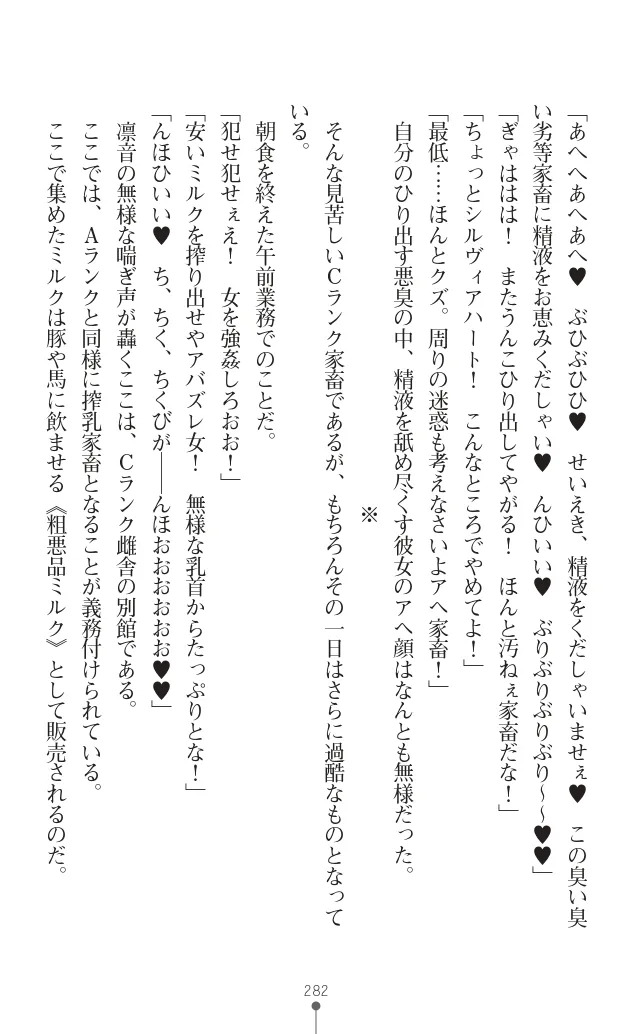 「あへへあへあへ♥　ぶひぶひひ♥　せいえき、精液をくだしゃいませぇ♥　この臭い臭
い劣等家畜に精液をお恵みくだしゃい♥　んひいい♥　ぶりぶりぶりぶり～～♥♥」
「ぎゃははは！　またうんこひり出してやがる！　ほんと汚ねぇ家畜だな！」
「ちょっとシルヴィアハート！　こんなところでやめてよ！」
「最低……ほんとクズ。周りの迷惑も考えなさいよアヘ家畜！」
　自分のひり出す悪臭の中、精液を舐め尽くす彼女のアヘ顔はなんとも無様だった。
※
　そんな見苦しいＣランク家畜であるが、もちろんその一日はさらに過酷なものとなって
いる。
　朝食を終えた午前業務でのことだ。
「犯せ犯せぇえ！　女を強姦しろおお！」
「安いミルクを搾り出せやアバズレ女！　無様な乳首からたっぷりとな！」
「んほひいい♥　ち、ちく、ちくびが――んほおおおおおお♥♥」
　凛音の無様な喘ぎ声が轟くここは、Ｃランク雌舎の別館である。
　ここでは、Ａランクと同様に搾乳家畜となることが義務付けられている。
　ここで集めたミルクは豚や馬に飲ませる《粗悪品ミルク》として販売されるのだ。
282